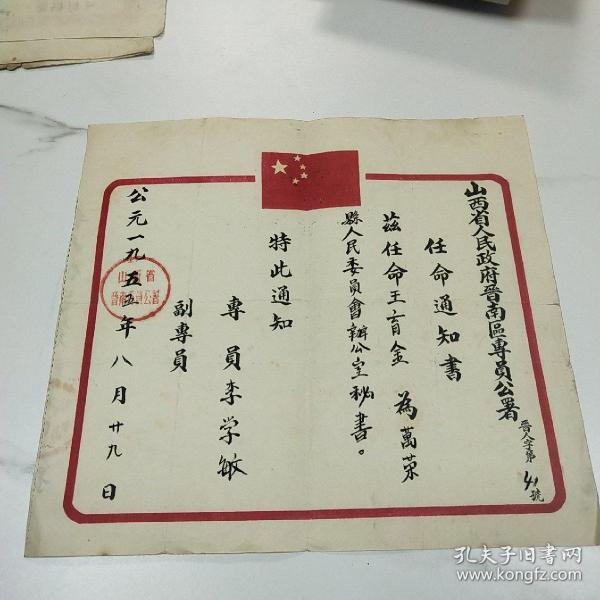 山西省人民政府晉南區專員公署
任命通知書
晉人字第41號
茲任命王育金 為萬荣
縣人民委員會辦公室秘書。
特此通知
專員李学敏
副專員
公元一九五五年八月廿九日
孔夫子旧书网
www.kongfz.com